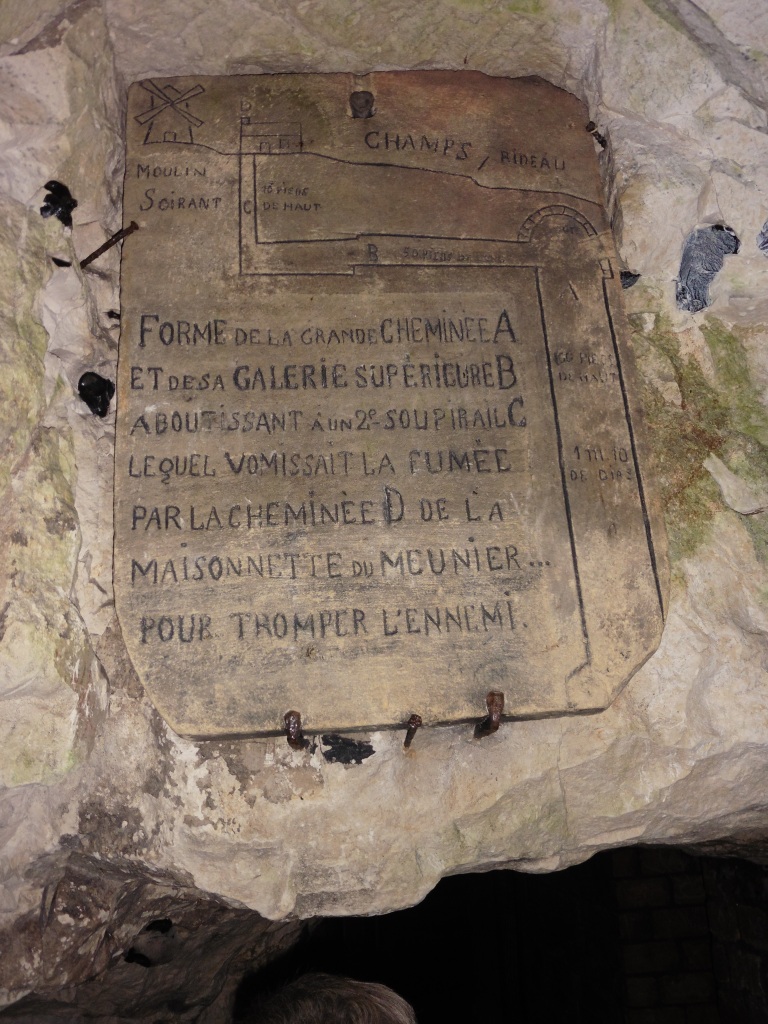 D
CHAMPS / RIDEAU
MOULIN
SOIRANT
15 PIEDS
C DE HAUT
B 50 PIEDS DE
A
PIEDS
DE HAUT
1 M. 10
DE
FORME DE LA GRANDE CHEMINEE A
ET DE SA GALERIE SUPÉRIEURE B
ABOUTISSANT À UN 2E SOUPIRAIL C
LEQUEL VOMISSAIT LA FUMÉE
PAR LA CHEMINÈE D DE LA
MAISONNETTE DU MEUNIER...
POUR TROMPER L'ENNEMI.